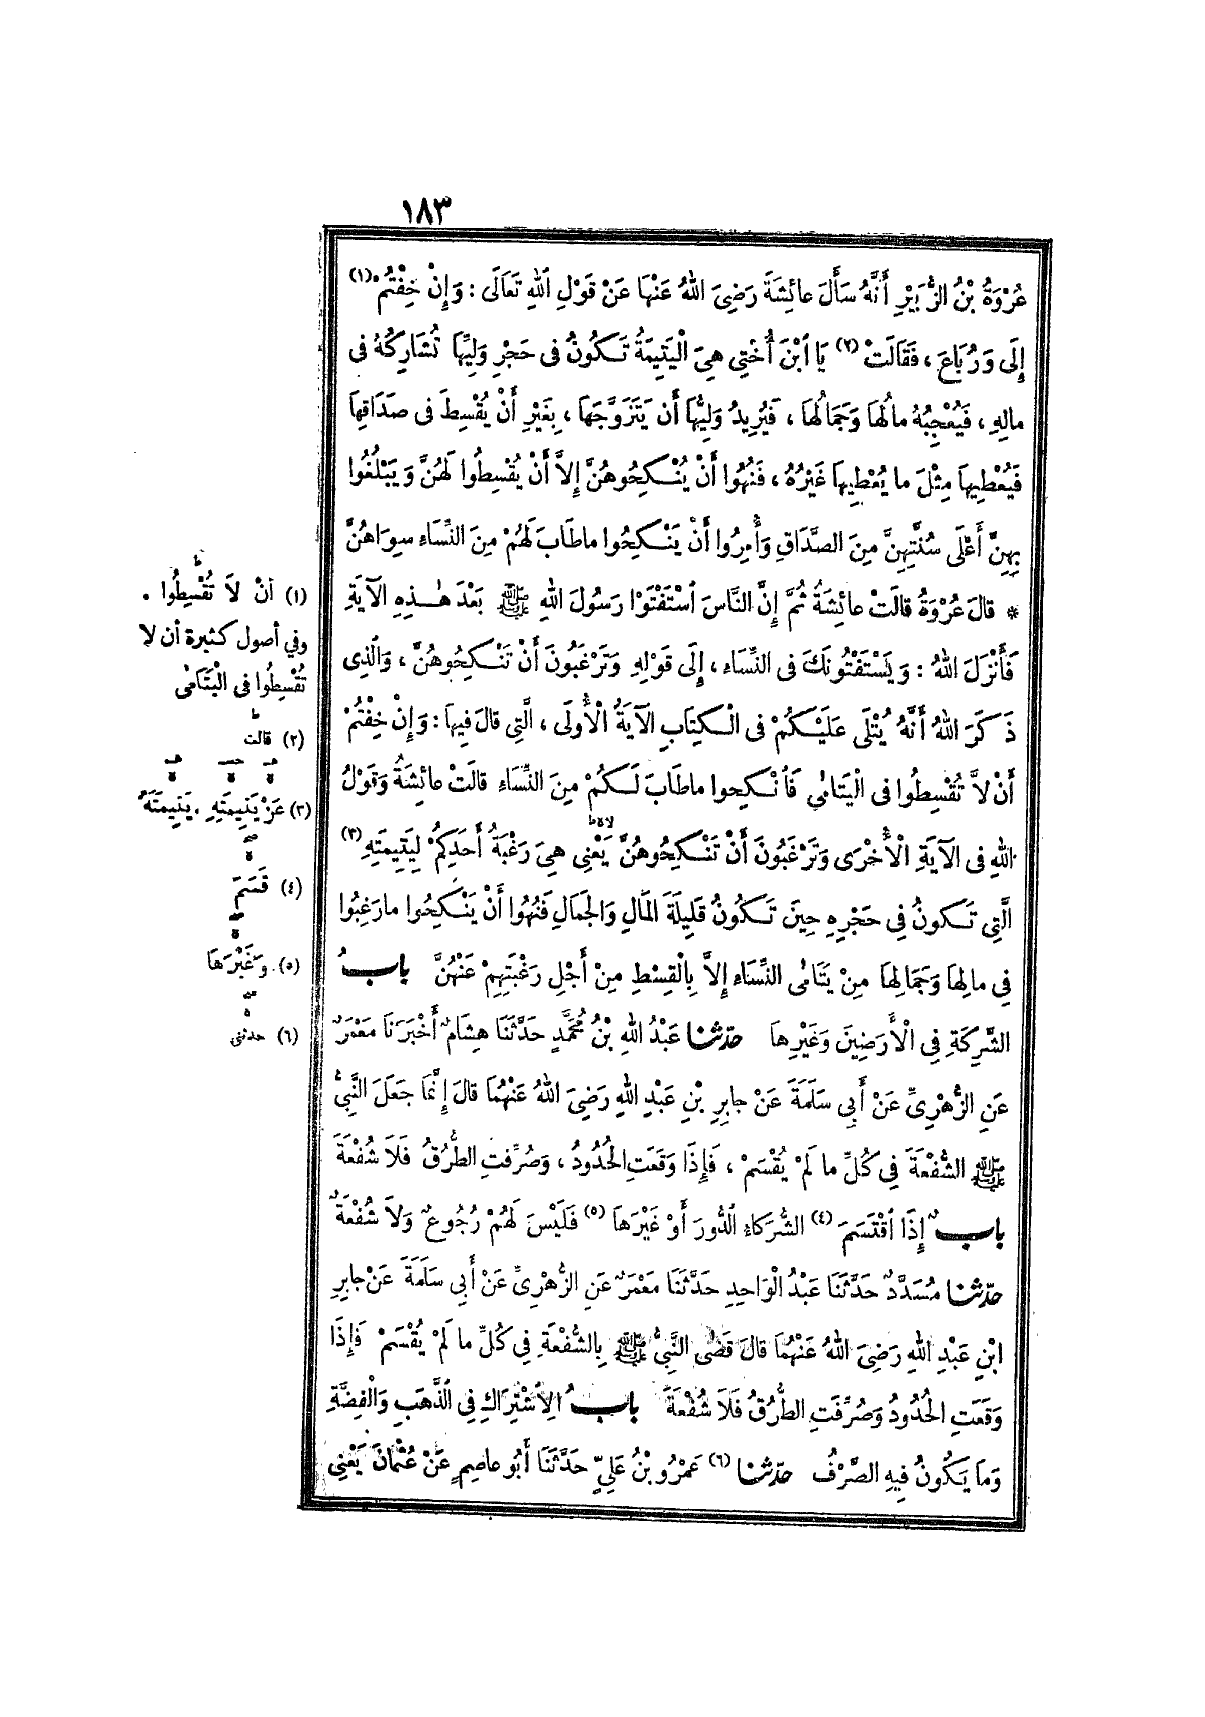 ١٨٣
عُرْوَةُ بْنُ الزُّبَيْرِ أَنَّهُ سَأَلَ عائِشَةَ رَضِيَ اللهُ عَنْهَا عَنْ قَوْلِ اللهِ تَعَالَى : وَإِنْ خِفْتُمْ (١)
إِلَى وَرُبَاعَ ، فَقَالَتْ (٢) يَا ٱبْنَ أُخْتِي هِيَ الْيَتِيمَةُ تَكُونُ فى حَجْرِ وَلِيِّهَا تُشَارِكُهُ فى
مالِهِ ، فَيُعْجِبُهُ مالُهَا وَجَمَالُهَا ، فَيُرِيدُ وَلِيُّهَا أَن يَتَزَوَّجَهَا ، بِغَيْرِ أَنْ يُقْسِطَ فى صَدَاقِهَا
فَيُعْطِيهَا مِثْلَ ما يُعْطِيهَا غَيْرُهُ ، فَنُهُوا أَنْ يُنْكِحُوهُنَّ إِلاَّ أَنْ يُقْسِطُوا لَهُنَّ وَيَبْلُغُوا
بِهِنَّ أَعْلَى سُنَّتِهِنَّ مِنَ الصَّدَاقِ وَأُمِرُوا أَنْ يَنْكِحُوا ماطَابَ لَهُمْ مِنَ النِّسَاءِ سِوَاهُنَّ
* قالَ عُرْوَةُ قالَتْ عائِشَةُ ثُمَّ إِنَّ النَّاسَ ٱسْتَفْتَوْا رَسُولَ اللهِ ﷺ بَعْدَ هٰذِهِ الآيَةِ
فَأَنْزَلَ اللهُ : وَيَسْتَفْتُونَكَ فى النِّسَاءِ ، إِلَى قَوْلِهِ وَتَرْغَبُونَ أَنْ تَنْكِحُوهُنَّ ، وَالَّذِى
ذَكَرَ اللهُ أَنَّهُ يُتْلَى عَلَيْكُمْ فى الْكِتَابِ الآيَةُ الْأُولَى ، الَّتِي قالَ فِيهَا : وَإِنْ خِفْتُمْ
أَنْ لاَّ تُقْسِطُوا فى الْيَتَامٰى فَٱنْكِحوا ماطَابَ لَكُمْ مِنَ النِّسَاءِ قالَتْ عائِشَةُ وَقَوْلُ
اللهِ فى الآيَةِ الْأُخْرَى وَتَرْغَبُونَ أَنْ تَنْكِحُوهُنَّ يَعْنِي هِيَ رَغْبَةُ أَحَدِكُمْ لِيَتِيمَتِهِ (٣)
الَّتِي تَكُونُ فِي حَجْرِهِ حِينَ تَكُونُ قَلِيلَةَ المَالِ وَالجَمَالِ فَنُهُوا أَنْ يَنْكِحُوا مارَغِبُوا
فِي مالِهَا وَجَمَالِهَا مِنْ يَتَامٰى النِّسَاءِ إِلاَّ بِالْقِسْطِ مِنْ أَجْلِ رَغْبَتِهِمْ عَنْهُنَّ بابُ
الشَّرِكَةِ فِي الْأَرَضِينَ وَغَيْرِهَا حدّثنا عَبْدُ اللهِ بْنُ مُحَمَّدٍ حَدَّثَنَا هِشَامٌ أَخْبَرَنَا مَعْمَرٌ
عَنِ الزُّهْرِىِّ عَنْ أَبِي سَلَمَةَ عَنْ جابِرِ بْنِ عَبْدِ اللهِ رَضِيَ اللهُ عَنْهُمَا قالَ إِنَّمَا جَعَلَ النَّبِيُّ
ﷺ الشُّفْعَةَ فِي كُلِّ ما لَمْ يُقْسَمْ ، فَإِذَا وَقَعَتِ الحُدُودُ ، وَصُرِّفَتِ الطُّرُقُ فَلَا شُفْعَةَ
بابٌ إِذَا ٱقْتَسَمَ (٤) الشُّرَكاءِ الدُّورَ أَوْ غَيْرَهَا (٥) فَلَيْسَ لَهُمْ رُجُوعٌ وَلاَ شُفْعَةٌ
حدّثنا مُسَدَّدٌ حَدَّثَنَا عَبْدُ الْوَاحِدِ حَدَّثَنَا مَعْمَرٌ عَنِ الزُّهْرِىِّ عَنْ أَبِي سَلَمَةَ عَنْ جابِرِ
ابْنِ عَبْدِ اللهِ رَضِيَ اللهُ عَنْهُمَا قالَ قَضٰى النَّبِيُّ ﷺ بِالشُّفْعَةِ فِي كُلِّ ما لَمْ يُقْسَمْ فَإِذَا
وَقَعَتِ الحُدُودُ وَصُرِّفَتِ الطُّرُقُ فَلَا شُفْعَةَ بابُ الِاشْتِرَاكِ فِي الذَّهَبِ وَالْفِضَّةِ
وَمَا يَكُونُ فِيهِ الصَّرْفُ حدّثنا (٦) عَمْرُو بْنُ عَلِيٍّ حَدَّثَنَا أَبُو عاصِمٍ عَنْ عُثْمَانَ يَعْنِي
(١) أنْ لاَ تُقْسِطُوا .
وفي أصول كثيرة أن لا
تُقْسِطُوا فى الْيَتَامٰى
(٢) قالت
(٣) عَنْ يَتِيمَتِهِ . يَتِيمَتَهُ
(٤) قَسَمَ
(٥) وَغَيْرَهَا
(٦) حدثنى